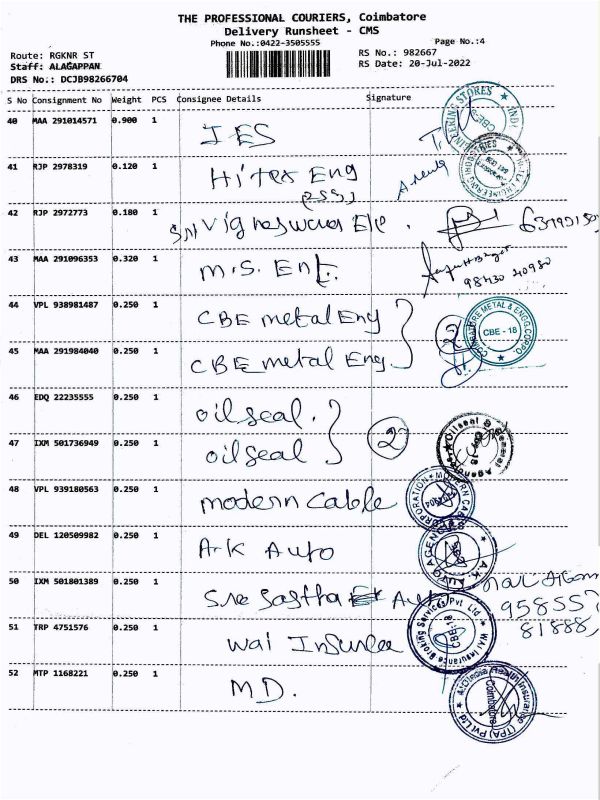 THE PROFESSIONAL COURIERS, Coimbatore
Delivery Runsheet - CMS
Phone No.:0422-3505555 Page No.:4
Route: RGKNR ST RS No.: 982667
Staff: ALAGAPPAN RS Date: 20-Jul-2022
DRS No.: DCJB98266704
S No Consignment No Weight PCS Consignee Details Signature
40 MAA 291014571 0.900 1 IES
41 RJP 2978319 0.120 1 Hitex Eng
42 RJP 2972773 0.180 1 Sri Vigneswara Ele.
43 MAA 291096353 0.320 1 M.S. Ent.
98430 40980
44 VPL 938981487 0.250 1 CBE metal Eng
COIMBATORE METAL & ENGG. CORPO. CBE - 18
45 MAA 291984040 0.250 1 CBE metal Eng. 2
46 EDQ 22235555 0.250 1 oil seal.
47 IXM 501736949 0.250 1 oil seal 2
48 VPL 939180563 0.250 1 modern cable
49 DEL 120509982 0.250 1 A.K Auto
50 IXM 501801389 0.250 1 Sre Sastha Auto
81888
51 TRP 4751576 0.250 1 Wai Insurance
WAI Insurance Broking Services Pvt Ltd CBE-18
52 MTP 1168221 0.250 1 M D.
Coimbatore (TPA) Pvt Ltd